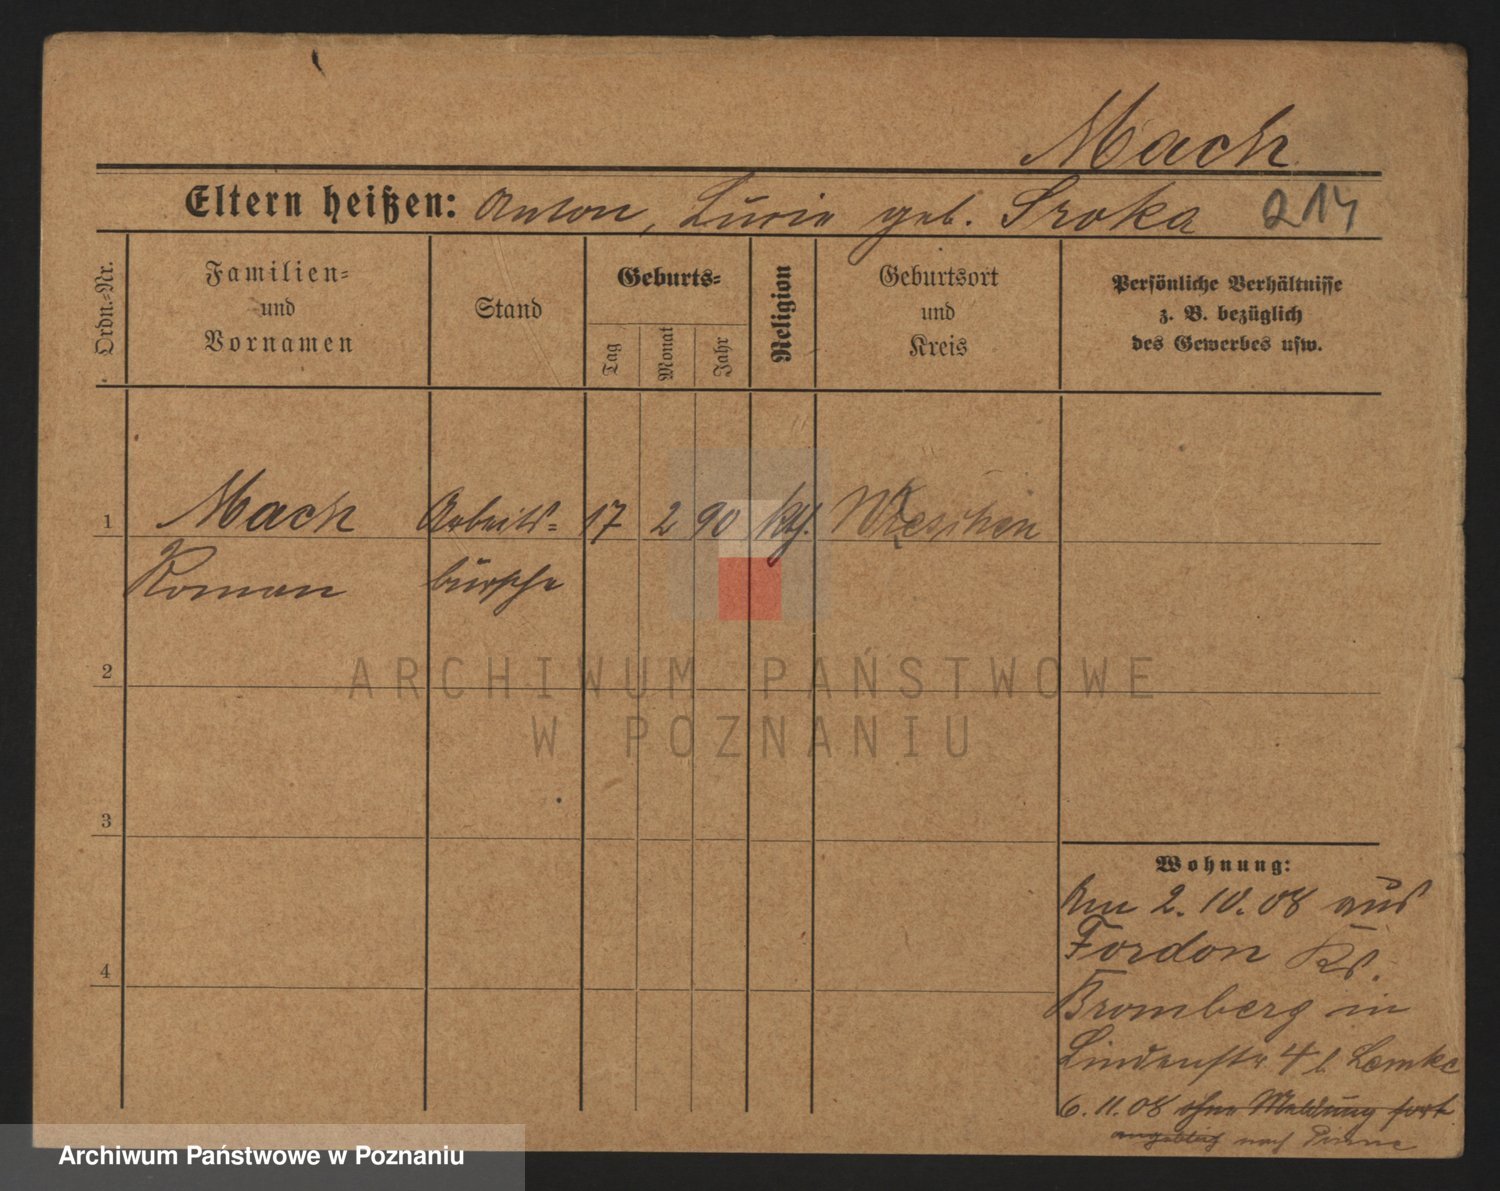 Mach
Eltern heißen: Anton, Lucie geb. Sroka 214
Ordn.=Nr.
Familien=
und
Vornamen
Stand
Geburts=
Tag
Monat
Jahr
Religion
Geburtsort
und
Kreis
Persönliche Verhältnisse
z. B. bezüglich
des Gewerbes usw.
1 Mach Arbeits= 17 2 90 kth. Wreschen
Roman bursche
2
3
4
Wohnung:
Am 2. 10. 08 aus
Fordon Kr.
Bromberg in
Lindenstr 4 b Lemke
6. 11. 08 ohne Meldung fort
angeblich nach Pinne
ARCHIWUM PAŃSTWOWE
W POZNANIU
Archiwum Państwowe w Poznaniu